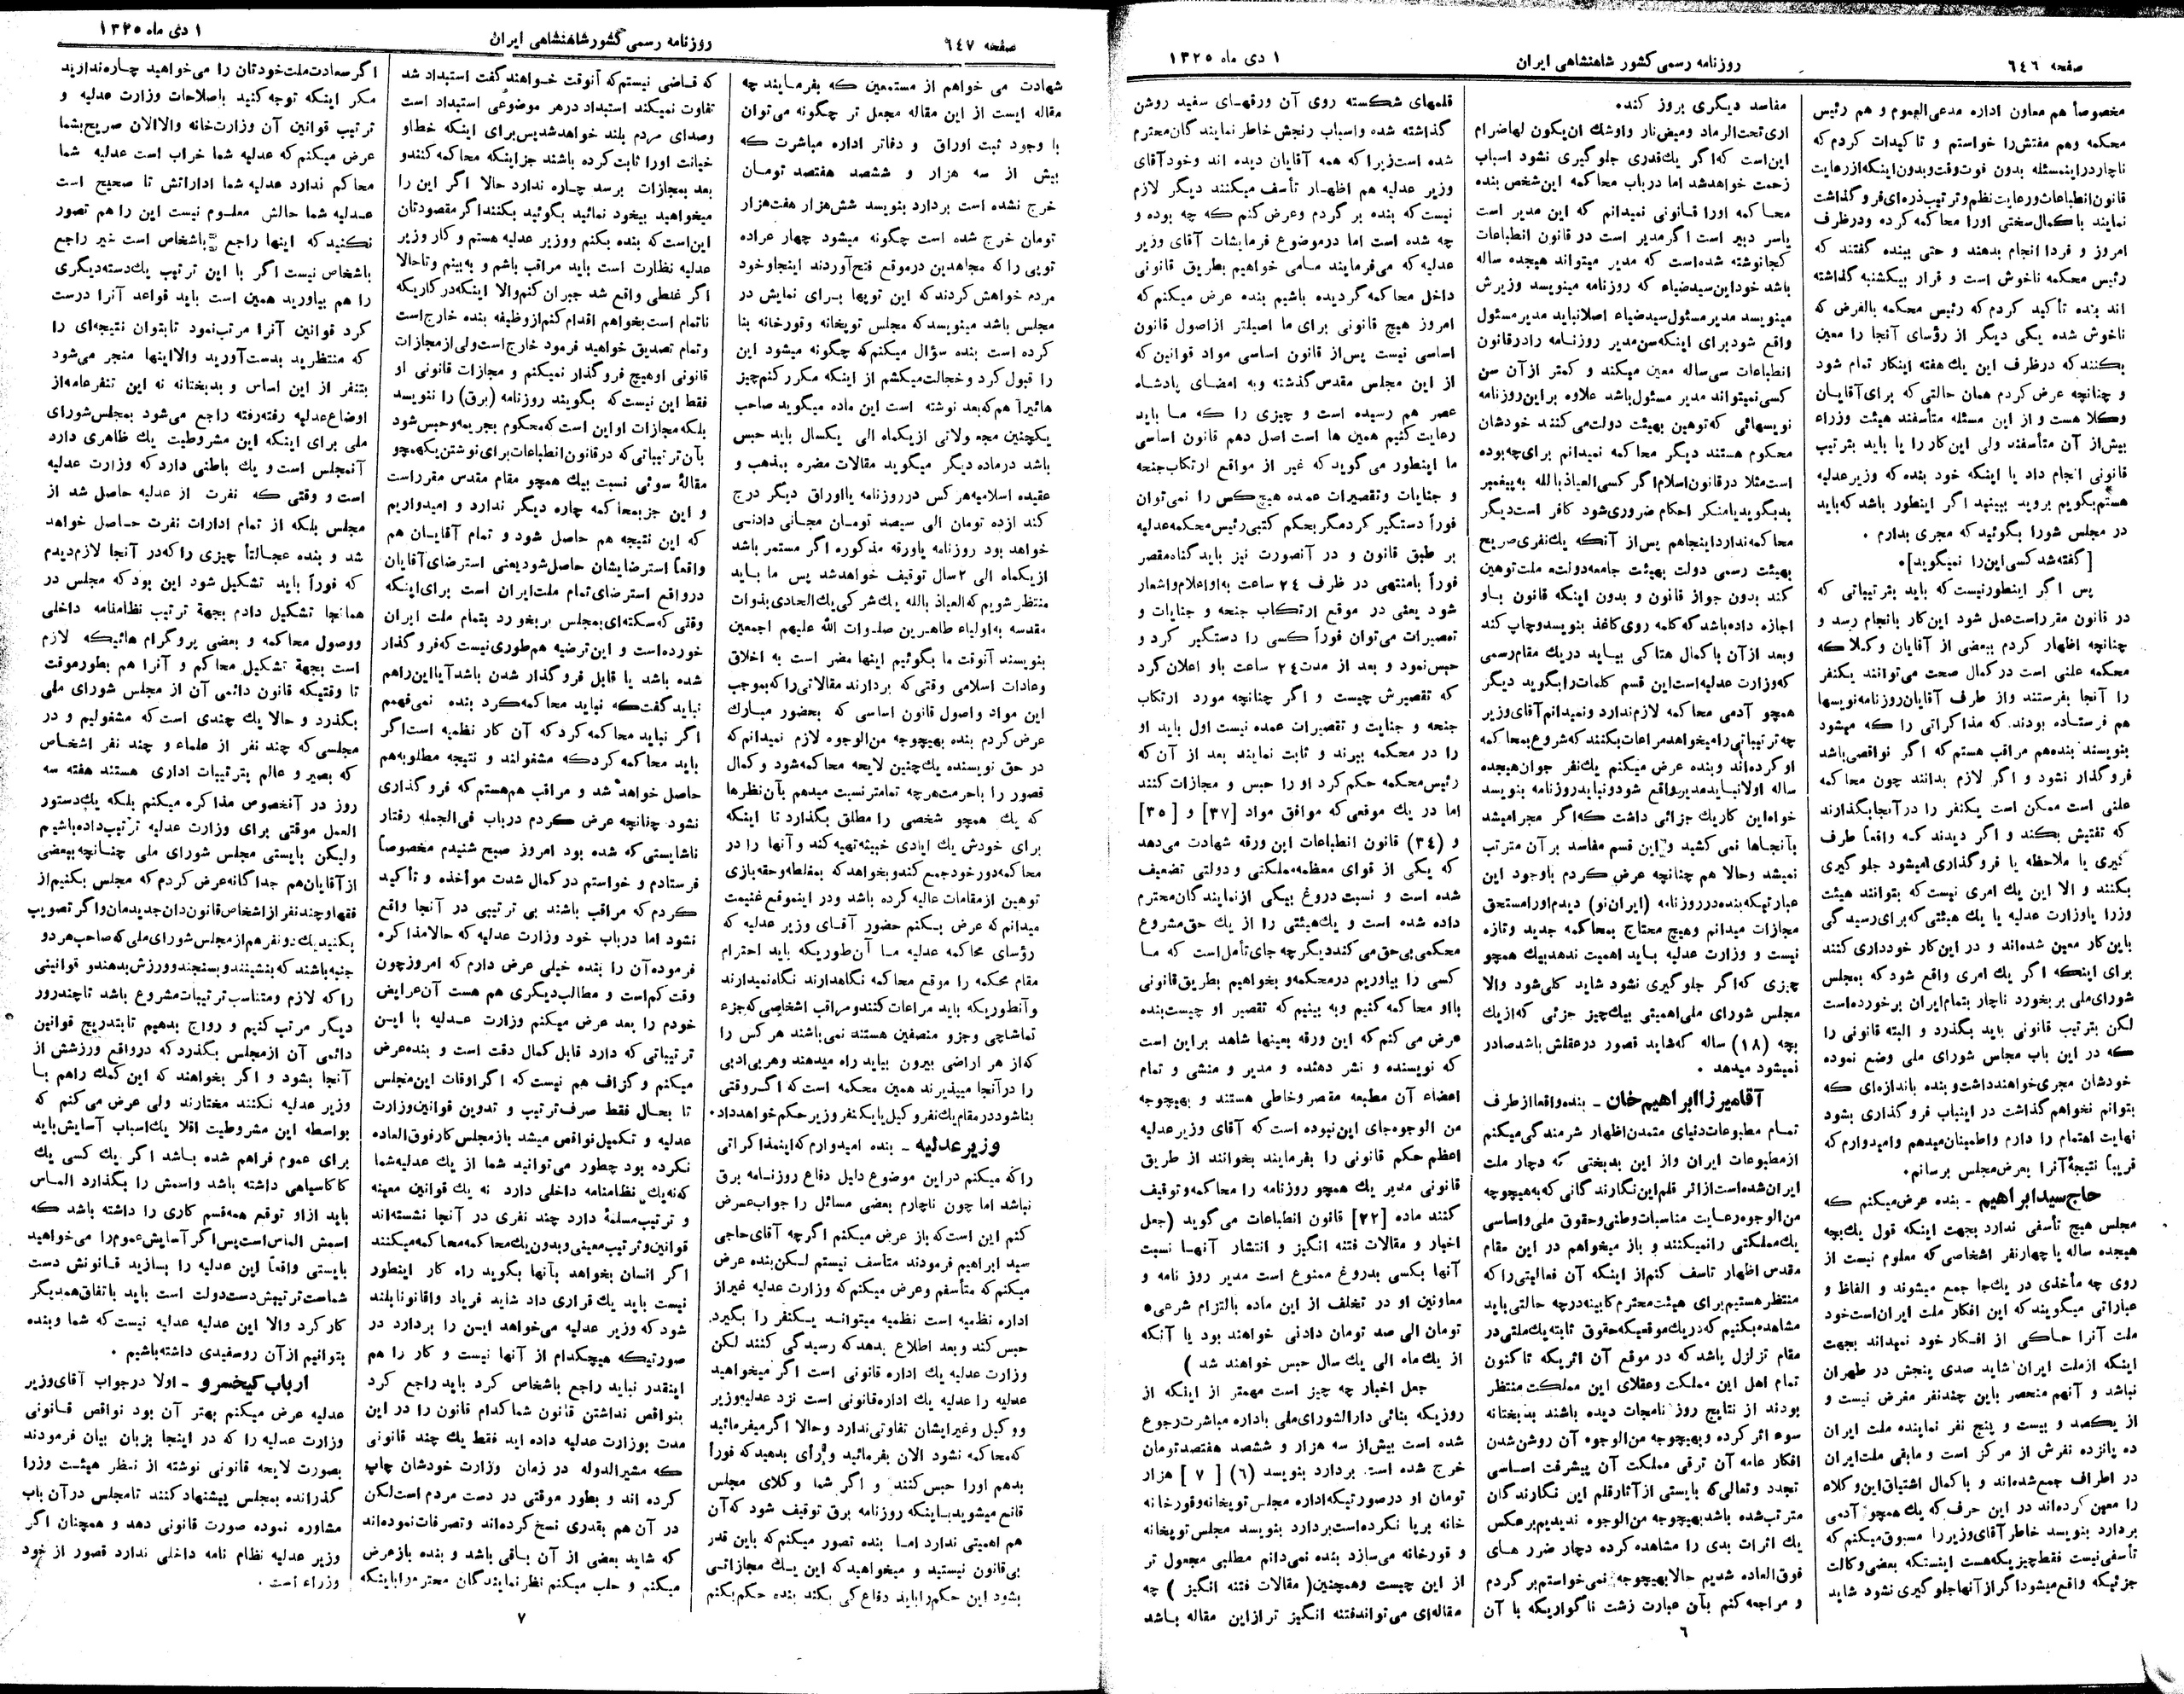 صفحه ٦٤٦
روزنامه رسمی کشور شاهنشاهی ایران
۱ دی ماه ۱۳۲۵
مخصوصاً هم معاون اداره مدعی العموم و هم رئیس
محکمه وهم مفتش را خواستم و تاکیدات کردم که
ناچار دراینمسئله بدون فوت وقت وبدون اینکه از رعایت
قانون انطباعات ورعایت نظم وترتیب ذره‌ای فروگذاشت
نمایند باکمال سختی اورا محاکمه کرده ودرظرف
امروز و فردا انجام بدهند و حتی ببنده گفتند که
رئیس محکمه ناخوش است و قرار بیکشنبه گذاشته
اند بنده تأکید کردم که رئیس محکمه بالفرض که
ناخوش شده یکی دیگر از رؤسای آنجا را معین
بکنند که درظرف این یك هفته اینکار تمام شود
و چنانچه عرض کردم همان حالتی که برای آقایان
وکلا هست و از این مسئله متأسفند هیئت وزراء
بیش از آن متأسفند ولی این کار را یا باید بترتیب
قانونی انجام داد یا اینکه خود بنده که وزیر عدلیه
هستم بگویم بروید ببینید اگر اینطور باشد که باید
در مجلس شورا بگوئید که مجری بدارم .
[گفته شد کسی این را نمیگوید].
پس اگر اینطور نیست که باید بترتیباتی که
در قانون مقرر است عمل شود این کار بانجام رسد و
چنانچه اظهار کردم ببعضی از آقایان وکلا که
محکمه علنی است در کمال صحت می‌توانند یکنفر
را آنجا بفرستند واز طرف آقایان روزنامه نویسها
هم فرستاده بودند که مذاکراتی را که میشود
بنویسند بنده‌هم مراقب هستم که اگر نواقصی باشد
فروگذار نشود و اگر لازم بدانند چون محاکمه
علنی است ممکن است یکنفر را در آنجا بگذارند
که تفتیش بکند و اگر دیدند که واقعاً طرف
گیری یا ملاحظه یا فروگذاری میشود جلوگیری
بکنند و الا این یك امری نیست که بتوانند هیئت
وزرا یا وزارت عدلیه یا یك هیئتی که برای رسیدگی
باین کار معین شده‌اند و در این کار خودداری کنند
برای اینکه اگر یك امری واقع شود که بمجلس
شورای ملی بر بخورد ناچار بتمام ایران برخورده است
لکن بترتیب قانونی باید بگذرد و البته قانونی را
که در این باب مجلس شورای ملی وضع نموده
خودشان مجری خواهند داشت و بنده باندازه‌ای که
بتوانم نخواهم گذاشت در اینباب فروگذاری بشود
نهایت اهتمام را دارم واطمینان میدهم وامیدوارم که
قریباً نتیجهٔ آنرا بعرض مجلس برسانم .
حاج سید ابراهیم - بنده عرض میکنم که
مجلس هیچ تأسفی ندارد بجهت اینکه قول یك بچه
هیجده ساله یا چهارنفر اشخاصی که معلوم نیست از
روی چه مأخذی در یك جا جمع میشوند و الفاظ و
عباراتی میگویند که این افکار ملت ایران است خود
ملت آنرا حاکی از افکار خود نمیداند بجهت
اینکه از ملت ایران شاید صدی پنجش در طهران
نباشد و آنهم منحصر باین چندنفر مغرض نیست و
از یکصد و بیست و پنج نفر نماینده ملت ایران
ده پانزده نفرش از مرکز است و مابقی ملت ایران
در اطراف جمع شده‌اند و باکمال اشتیاق این وکلاء
را معین کرده‌اند در این حرف که یك همچو آدمی
بردارد بنویسد خاطر آقای وزیر را مسبوق میکنم که
تأسفی نیست فقط چیزیکه هست اینستکه بعضی وکالت
جزئیکه واقع میشود اگر از آنها جلوگیری نشود شاید
مفاسد دیگری بروز کند.
اری تحت الرماد ومیض نار واوشك ان یکون لها ضرام
این است که اگر یك قدری جلوگیری نشود اسباب
زحمت خواهد شد اما درباب محاکمه این شخص بنده
محاکمه اورا قانونی نمیدانم که این مدیر است
یاسر دبیر است اگر مدیر است در قانون انطباعات
کجا نوشته شده‌است که مدیر میتواند هیجده ساله
باشد خود این سید ضیاء که روزنامه مینویسد وزیرش
مینویسد مدیر مسئول سید ضیاء اصلا نباید مدیر مسئول
واقع شود برای اینکه سن مدیر روزنامه را در قانون
انطباعات سی ساله معین میکند و کمتر از آن سن
کسی نمیتواند مدیر مسئول باشد علاوه بر این روزنامه
نویسهائی که توهین بهیئت دولت می‌کنند خودشان
محکوم هستند دیگر محاکمه نمیدانم برای چه بوده
است مثلا در قانون اسلام اگر کسی العیاذ بالله به پیغمبر
بد بگوید یا منکر احکام ضروری شود کافر است دیگر
محاکمه ندارد اینجا هم پس از آنکه یك نفری صریح
بهیئت رسمی دولت بهیئت جامعه دولت ملت توهین
کند بدون جواز قانون و بدون اینکه قانون باو
اجازه داده باشد که کلمه روی کاغذ بنویسد وچاپ کند
وبعد از آن باکمال هتاکی بیاید در یك مقام رسمی
که وزارت عدلیه است این قسم کلمات را بگوید دیگر
همچو آدمی محاکمه لازم ندارد ونمیدانم آقای وزیر
چه ترتیباتی را میخواهد مراعات بکنند که شروع بمحاکمه
او کرده‌اند وبنده عرض میکنم یك نفر جوان هیجده
ساله اولا نباید مدیر واقع شود و نباید روزنامه بنویسد
خواه این کار یك جزائی داشت که اگر مجرا میشد
بآنجاها نمی کشید واین قسم مفاسد بر آن مترتب
نمیشد وحالا هم چنانچه عرض کردم باوجود این
عبارتیکه بنده در روزنامه (ایران نو) دیدم اورا مستحق
مجازات میدانم وهیچ محتاج بمحاکمه جدید وتازه
نیست و وزارت عدلیه باید اهمیت ندهد بیك همچو
چیزی که اگر جلوگیری نشود شاید کلی شود والا
مجلس شورای ملی اهمیتی بیك چیز جزئی که از یك
بچه (۱۸) ساله که شاید قصور در عقلش باشد صادر
نمیشود میدهد .
آقا میرزا ابراهیم خان - بنده واقعاً از طرف
تمام مطبوعات دنیای متمدن اظهار شرمندگی میکنم
از مطبوعات ایران واز این بدبختی که دچار ملت
ایران شده است از اثر قلم این نگارندگانی که به هیچوجه
من الوجوه رعایت مناسبات وطنی وحقوق ملی واساسی
یك مملکتی را نمیکنند و باز میخواهم در این مقام
مقدس اظهار تاسف کنم از اینکه آن فعالیتی را که
منتظر هستیم برای هیئت محترم کابینه درچه حالتی باید
مشاهده بکنیم که در یك موقعیکه حقوق ثابته یك ملتی در
مقام تزلزل باشد که در موقع آن اثریکه تاکنون
تمام اهل این مملکت وعقلای این مملکت منتظر
بودند از نتایج روزنامجات دیده باشند بدبختانه
سوء اثر کرده وبهیچوجه من الوجوه آن روشن شدن
افکار عامه آن ترقی مملکت آن پیشرفت اساسی
تجدد وتعالی که بایستی از آثار قلم این نگارندگان
مترتب شده باشد بهیچوجه من الوجوه ندیدیم بر عکس
یك اثرات بدی را مشاهده کرده دچار ضرر های
فوق العاده شدیم حالا بهیچوجه نمی خواستم بر گردم
و مراجعه کنم بآن عبارت زشت ناگواریکه با آن
قلمهای شکسته روی آن ورقهای سفید روشن
گذاشته شده واسباب رنجش خاطر نمایندگان محترم
شده است زیرا که همه آقایان دیده اند وخود آقای
وزیر عدلیه هم اظهار تأسف میکنند دیگر لازم
نیست که بنده بر گردم وعرض کنم که چه بوده و
چه شده است اما در موضوع فرمایشات آقای وزیر
عدلیه که می‌فرمایند مامی خواهیم بطریق قانونی
داخل محاکمه گردیده باشیم بنده عرض میکنم که
امروز هیچ قانونی برای ما اصیلتر از اصول قانون
اساسی نیست پس از قانون اساسی مواد قوانین که
از این مجلس مقدس گذشته وبه امضای پادشاه
عصر هم رسیده است و چیزی را که ما باید
رعایت کنیم همین ها است اصل دهم قانون اساسی
ما اینطور می گوید که غیر از مواقع ارتکاب جنحه
و جنایات وتقصیرات عمده هیچکس را نمی‌توان
فوراً دستگیر کرد مگر بحکم کتبی رئیس محکمه عدلیه
بر طبق قانون و در آنصورت نیز باید گناه مقصر
فوراً یا منتهی در ظرف ٢٤ ساعت به او اعلام واشعار
شود یعنی در موقع ارتکاب جنحه و جنایات و
تقصیرات می‌توان فوراً کسی را دستگیر کرد و
حبس نمود و بعد از مدت ٢٤ ساعت باو اعلان کرد
که تقصیرش چیست و اگر چنانچه مورد ارتکاب
جنحه و جنایت و تقصیرات عمده نیست اول باید او
را در محکمه ببرند و ثابت نمایند بعد از آن که
رئیس محکمه حکم کرد او را حبس و مجازات کنند
اما در یك موقعی که موافق مواد [۳۷] و [۳۵]
و (٣٤) قانون انطباعات این ورقه شهادت می‌دهد
که یکی از قوای معظمه مملکتی و دولتی تضعیف
شده است و نسبت دروغ بیکی از نمایندگان محترم
داده شده است و یك هیئتی را از یك حق مشروع
محکمی بی حق می کند دیگر چه جای تأمل است که ما
کسی را بیاوریم در محکمه و بخواهیم بطریق قانونی
با او محاکمه کنیم وبه بینیم که تقصیر او چیست بنده
عرض می کنم که این ورقه بعینها شاهد بر این است
که نویسنده و نشر دهنده و مدیر و منشی و تمام
اعضاء آن مطبعه مقصر وخاطی هستند و بهیچوجه
من الوجوه جای این نبوده است که آقای وزیر عدلیه
اعظم حکم قانونی را بفرمایند بخوانند از طریق
قانونی مدیر یك همچو روزنامه را محاکمه و توقیف
کنند ماده [۲۲] قانون انطباعات می گوید (جعل
اخبار و مقالات فتنه انگیز و انتشار آنها نسبت
آنها بکسی بدروغ ممنوع است مدیر روز نامه و
معاونین او در تخلف از این ماده بالتزام شرعی ۵
تومان الی صد تومان دادنی خواهند بود یا آنکه
از یك ماه الی یك سال حبس خواهند شد )
جعل اخبار چه چیز است مهمتر از اینکه از
روزیکه بنائی دارالشورای ملی باداره مباشرت رجوع
شده است بیش از سه هزار و ششصد هفتصد تومان
خرج شده است بردارد بنویسد (٦) [ ۷ ] هزار
تومان او درصورتیکه اداره مجلس توپخانه وقورخانه
خانه برپا نکرده است بردارد بنویسد مجلس توپخانه
و قورخانه می‌سازد بنده نمی‌دانم مطلبی مجعول تر
از این چیست وهمچنین( مقالات فتنه انگیز ) چه
مقاله‌ای می‌تواند فتنه انگیز تر از این مقاله باشد
٦
صفحه ٦٤٧
روزنامه رسمی کشور شاهنشاهی ایران
۱ دی ماه ۱۳۲۵
شهادت می خواهم از مستمعین که بفرمایند چه
مقاله ایست از این مقاله مجعل تر چگونه می‌توان
با وجود ثبت اوراق و دفاتر اداره مباشرت که
بیش از سه هزار و ششصد هفتصد تومان
خرج نشده است بردارد بنویسد شش هزار هفت هزار
تومان خرج شده است چگونه میشود چهار عراده
توپی را که مجاهدین در موقع فتح آوردند اینجا وخود
مردم خواهش کردند که این توپها برای نمایش در
مجلس باشد مینویسد که مجلس توپخانه وقورخانه بنا
کرده است بنده سؤال میکنم که چگونه میشود این
را قبول کرد و خجالت میکشم از اینکه مکرر کنم چیز
هائیرا هم که بعد نوشته است این ماده میگوید صاحب
یکچنین مجعولاتی از یکماه الی یکسال باید حبس
باشد درماده دیگر میگوید مقالات مضره بمذهب و
عقیده اسلامیه هر کس در روزنامه یا اوراق دیگر درج
کند از ده تومان الی سیصد تومان مجانی دادنی
خواهد بود روزنامه یا ورقه مذکوره اگر مستمر باشد
از یکماه الی ۲ سال توقیف خواهد شد پس ما باید
منتظر شویم که العیاذ بالله یك شرکی یك الحادی بذوات
مقدسه به اولیاء طاهرین صلوات الله علیهم اجمعین
بنویسند آنوقت ما بگوئیم اینها مضر است به اخلاق
وعادات اسلامی وقتی که بردارند مقالاتی را که بموجب
این مواد واصول قانون اساسی که بحضور مبارك
عرض کردم بنده بهیچوجه من الوجوه لازم نمیدانم که
در حق نویسنده یك چنین لایحه محاکمه شود و کمال
قصور را باحرمت هرچه تمامتر نسبت میدهم بآن نظرها
که یك همچو شخصی را مطلق بگذارد تا اینکه
برای خودش یك ایادی خبیثه تهیه کند و آنها را در
محاکمه دور خود جمع کند و بخواهد که بمغلطه وحقه بازی
توهین از مقامات عالیه کرده باشد ودر اینموقع غنیمت
میدانم که عرض بکنم حضور آقای وزیر عدلیه که
رؤسای محاکمه عدلیه ما آن طوریکه باید احترام
مقام محکمه را موقع محاکمه نگاهدارند نگاه نمیدارند
وآنطوریکه باید مراعات کنند ومراقب اشخاصی که جزء
تماشاچی وجزو منصفین هستند نمی‌باشند هر کس را
که از هر اراضی بیرون بیاید راه میدهند وهر بی ادبی
را در آنجا میپذیرند همین محکمه است که اگر وقتی
بنا شود در مقام یك نفر وکیل یا یکنفر وزیر حکم خواهد داد.
وزیر عدلیه - بنده امیدوارم که اینمذاکراتی
را که میکنم در این موضوع دلیل دفاع روزنامه برق
نباشد اما چون ناچارم بعضی مسائل را جواب عرض
کنم این است که باز عرض میکنم اگرچه آقای حاجی
سید ابراهیم فرمودند متأسف نیستم لکن بنده عرض
میکنم که متأسفم وعرض میکنم که وزارت عدلیه غیر از
اداره نظمیه است نظمیه میتواند یکنفر را بگیرد
حبس کند و بعد اطلاع بدهد که رسیدگی کنند لکن
وزارت عدلیه یك اداره قانونی است اگر میخواهید
عدلیه را عدلیه یك اداره قانونی است نزد عدلیه وزیر
ووکیل وغیرایشان تفاوتی ندارد وحالا اگر میفرمائید
که محاکمه نشود الان بفرمائید ورأی بدهید که فوراً
بدهم اورا حبس کنند و اگر شما وکلای مجلس
قانع میشوید باینکه روزنامه برق توقیف شود که آن
هم اهمیتی ندارد اما بنده تصور میکنم که باین قدر
بی قانون نیستید و میخواهید که این یك مجازاتی
بشود این حکم را باید دفاع کی بکند بنده حکم بکنم
که قاضی نیستم که آنوقت خواهند گفت استبداد شد
تفاوت نمیکند استبداد درهر موضوعی استبداد است
وصدای مردم بلند خواهد شد پس برای اینکه خطاو
خیانت اورا ثابت کرده باشند جز اینکه محاکمه کنند و
بعد بمجازات برسد چاره ندارد حالا اگر این را
میخواهید بیخود نمائید بگوئید بکنند اگر مقصودتان
این است که بنده بکنم و وزیر عدلیه هستم و کار وزیر
عدلیه نظارت است باید مراقب باشم و به بینم وتا حالا
اگر غلطی واقع شد جبران کنم والا اینکه در کاریکه
ناتمام است بخواهم اقدام کنم از وظیفه بنده خارج است
وتمام تصدیق خواهید فرمود خارج است ولی از مجازات
قانونی او هیچ فروگذار نمیکنم و مجازات قانونی او
فقط این نیست که بگویند روزنامه (برق) را ننویسد
بلکه مجازات او این است که محکوم بجریمه وحبس شود
بآن ترتیباتی که در قانون انطباعات برای نوشتن یکهمچو
مقالهٔ سوئی نسبت بیك همچو مقام مقدس مقرر است
و این جز بمحاکمه چاره دیگر ندارد و امیدواریم
که این نتیجه هم حاصل شود و تمام آقایان هم
واقعاً استرضایشان حاصل شود یعنی استرضای آقایان
در واقع استرضای تمام ملت ایران است برای اینکه
وقتی که سکته‌ای بمجلس بر بخورد بتمام ملت ایران
خورده است و این ترضیه هم طوری نیست که فروگذار
شده باشد یا قابل فروگذار شدن باشد آیا این را هم
نباید گفت که نباید محاکمه کرد بنده نمی فهمم
اگر نباید محاکمه کرد که آن کار نظمیه است اگر
باید محاکمه کرد که مشغولند و نتیجه مطلوبه هم
حاصل خواهد شد و مراقب هم هستم که فروگذاری
نشود چنانچه عرض کردم درباب فی الجمله رفتار
ناشایستی که شده بود امروز صبح شنیدم مخصوصاً
فرستادم و خواستم در کمال شدت مواخذه و تأکید
کردم که مراقب باشند بی ترتیبی در آنجا واقع
نشود اما درباب خود وزارت عدلیه که حالا مذاکره
فرموده آن را بنده خیلی عرض دارم که امروز چون
وقت کم است و مطالب دیگری هم هست آن عرایض
خودم را بعد عرض میکنم وزارت عدلیه با این
ترتیباتی که دارد قابل کمال دقت است و بنده عرض
میکنم و گزاف هم نیست که اگر اوقات این مجلس
تا بحال فقط صرف ترتیب و تدوین قوانین وزارت
عدلیه و تکمیل نواقص میشد باز مجلس کار فوق العاده
نکرده بود چطور می‌توانید شما از یك عدلیه شما
که نه یك نظامنامه داخلی دارد نه یك قوانین معینه
و ترتیب مسلمهٔ دارد چند نفری در آنجا نشسته‌اند
قوانین وترتیب معینی وبدون یك محاکمه محاکمه میکنند
اگر انسان بخواهد بآنها بگوید راه کار اینطور
نیست باید یك قراری داد شاید فریاد واقانونا بلند
شود که وزیر عدلیه می‌خواهد این را بردارد در
صورتیکه هیچکدام از آنها نیست و کار را هم
اینقدر نباید راجع باشخاص کرد باید راجع کرد
بنواقص نداشتن قانون شما کدام قانون را در این
مدت بوزارت عدلیه داده اید فقط یك چند قانونی
که مشیرالدوله در زمان وزارت خودشان چاپ
کرده اند و بطور موقتی در دست مردم است لکن
در آن هم بقدری نسخ کرده‌اند وتصرفات نموده‌اند
که شاید بعضی از آن باقی باشد و بنده باز عرض
میکنم و جلب میکنم نظر نمایندگان محترم را باینکه
اگر سعادت ملت خودتان را می‌خواهید چاره ندارید
مگر اینکه توجه کنید باصلاحات وزارت عدلیه و
ترتیب قوانین آن وزارت خانه والا الان صریح بشما
عرض میکنم که عدلیه شما خراب است عدلیه شما
محاکم ندارد عدلیه شما اداراتش تا صحیح است
عدلیه شما حالش معلوم نیست این را هم تصور
نکنید که اینها راجع باشخاص است خیر راجع
باشخاص نیست اگر با این ترتیب یك دسته دیگری
را هم بیاورید همین است باید قواعد آنرا درست
کرد قوانین آنرا مرتب نمود تا بتوان نتیجه‌ای را
که منتظرید بدست آورید والا اینها منجر می‌شود
بتنفر از این اساس و بدبختانه نه این تنفر عامه از
اوضاع عدلیه رفته رفته راجع می‌شود بمجلس شورای
ملی برای اینکه این مشروطیت یك ظاهری دارد
آنمجلس است و یك باطنی دارد که وزارت عدلیه
است و وقتی که نفرت از عدلیه حاصل شد از
مجلس بلکه از تمام ادارات نفرت حاصل خواهد
شد و بنده عجالتاً چیزی را که در آنجا لازم دیدم
که فوراً باید تشکیل شود این بود که مجلس در
همانجا تشکیل دادم بجهة ترتیب نظامنامه داخلی
ووصول محاکمه و بعضی پروگرام هائیکه لازم
است بجهة تشکیل محاکم و آنرا هم بطور موقت
تا وقتیکه قانون دائمی آن از مجلس شورای ملی
بگذرد و حالا یك چندی است که مشغولیم و در
مجلسی که چند نفر از علماء و چند نفر اشخاص
که بصیر و عالم بترتیبات اداری هستند هفته سه
روز در آنخصوص مذاکره میکنم بلکه یك دستور
العمل موقتی برای وزارت عدلیه ترتیب داده باشیم
ولیکن بایستی مجلس شورای ملی چنانچه ببعضی
از آقایان هم جداگانه عرض کردم که مجلس بکنیم از
فقها و چند نفر از اشخاص قانون دان جدیدمان واگر تصویب
بکنید یك دو نفر هم از مجلس شورای ملی که صاحب هر دو
جنبه باشند که بنشینند وبسنجند و ورزش بدهند و قوانینی
را که لازم و متناسب ترتیبات مشروع باشد تا چند روز
دیگر مرتب کنیم و رواج بدهیم تا بتدریج قوانین
دائمی آن از مجلس بگذرد که در واقع ورزشش از
آنجا بشود و اگر بخواهند که این کمك را هم با
وزیر عدلیه نکنند مختارند ولی عرض می‌کنم که
بواسطه این مشروطیت اقلا یك اسباب آسایش باید
برای عموم فراهم شده باشد اگر یك کسی یك
کاکاسیاهی داشته باشد واسمش را بگذارد الماس
باید از او توقع همه قسم کاری را داشته باشد که
اسمش الماس است پس اگر آسایش عموم را می‌خواهید
بایستی واقعاً این عدلیه را بسازید قانونش دست
شماست ترتیبش دست دولت است باید باتفاق همدیگر
کار کرد والا این عدلیه عدلیه نیست که شما وبنده
بتوانیم از آن روسفیدی داشته باشیم .
ارباب کیخسرو - اولا درجواب آقای وزیر
عدلیه عرض میکنم بهتر آن بود نواقص قانونی
وزارت عدلیه را که در اینجا بزبان بیان فرمودند
بصورت لایحه قانونی نوشته از نظر هیئت وزرا
گذرانده بمجلس پیشنهاد کنند تا مجلس در آن باب
مشاوره نموده صورت قانونی دهد و همچنان اگر
وزیر عدلیه نظام نامه داخلی ندارد قصور از خود
وزراء است .
۷